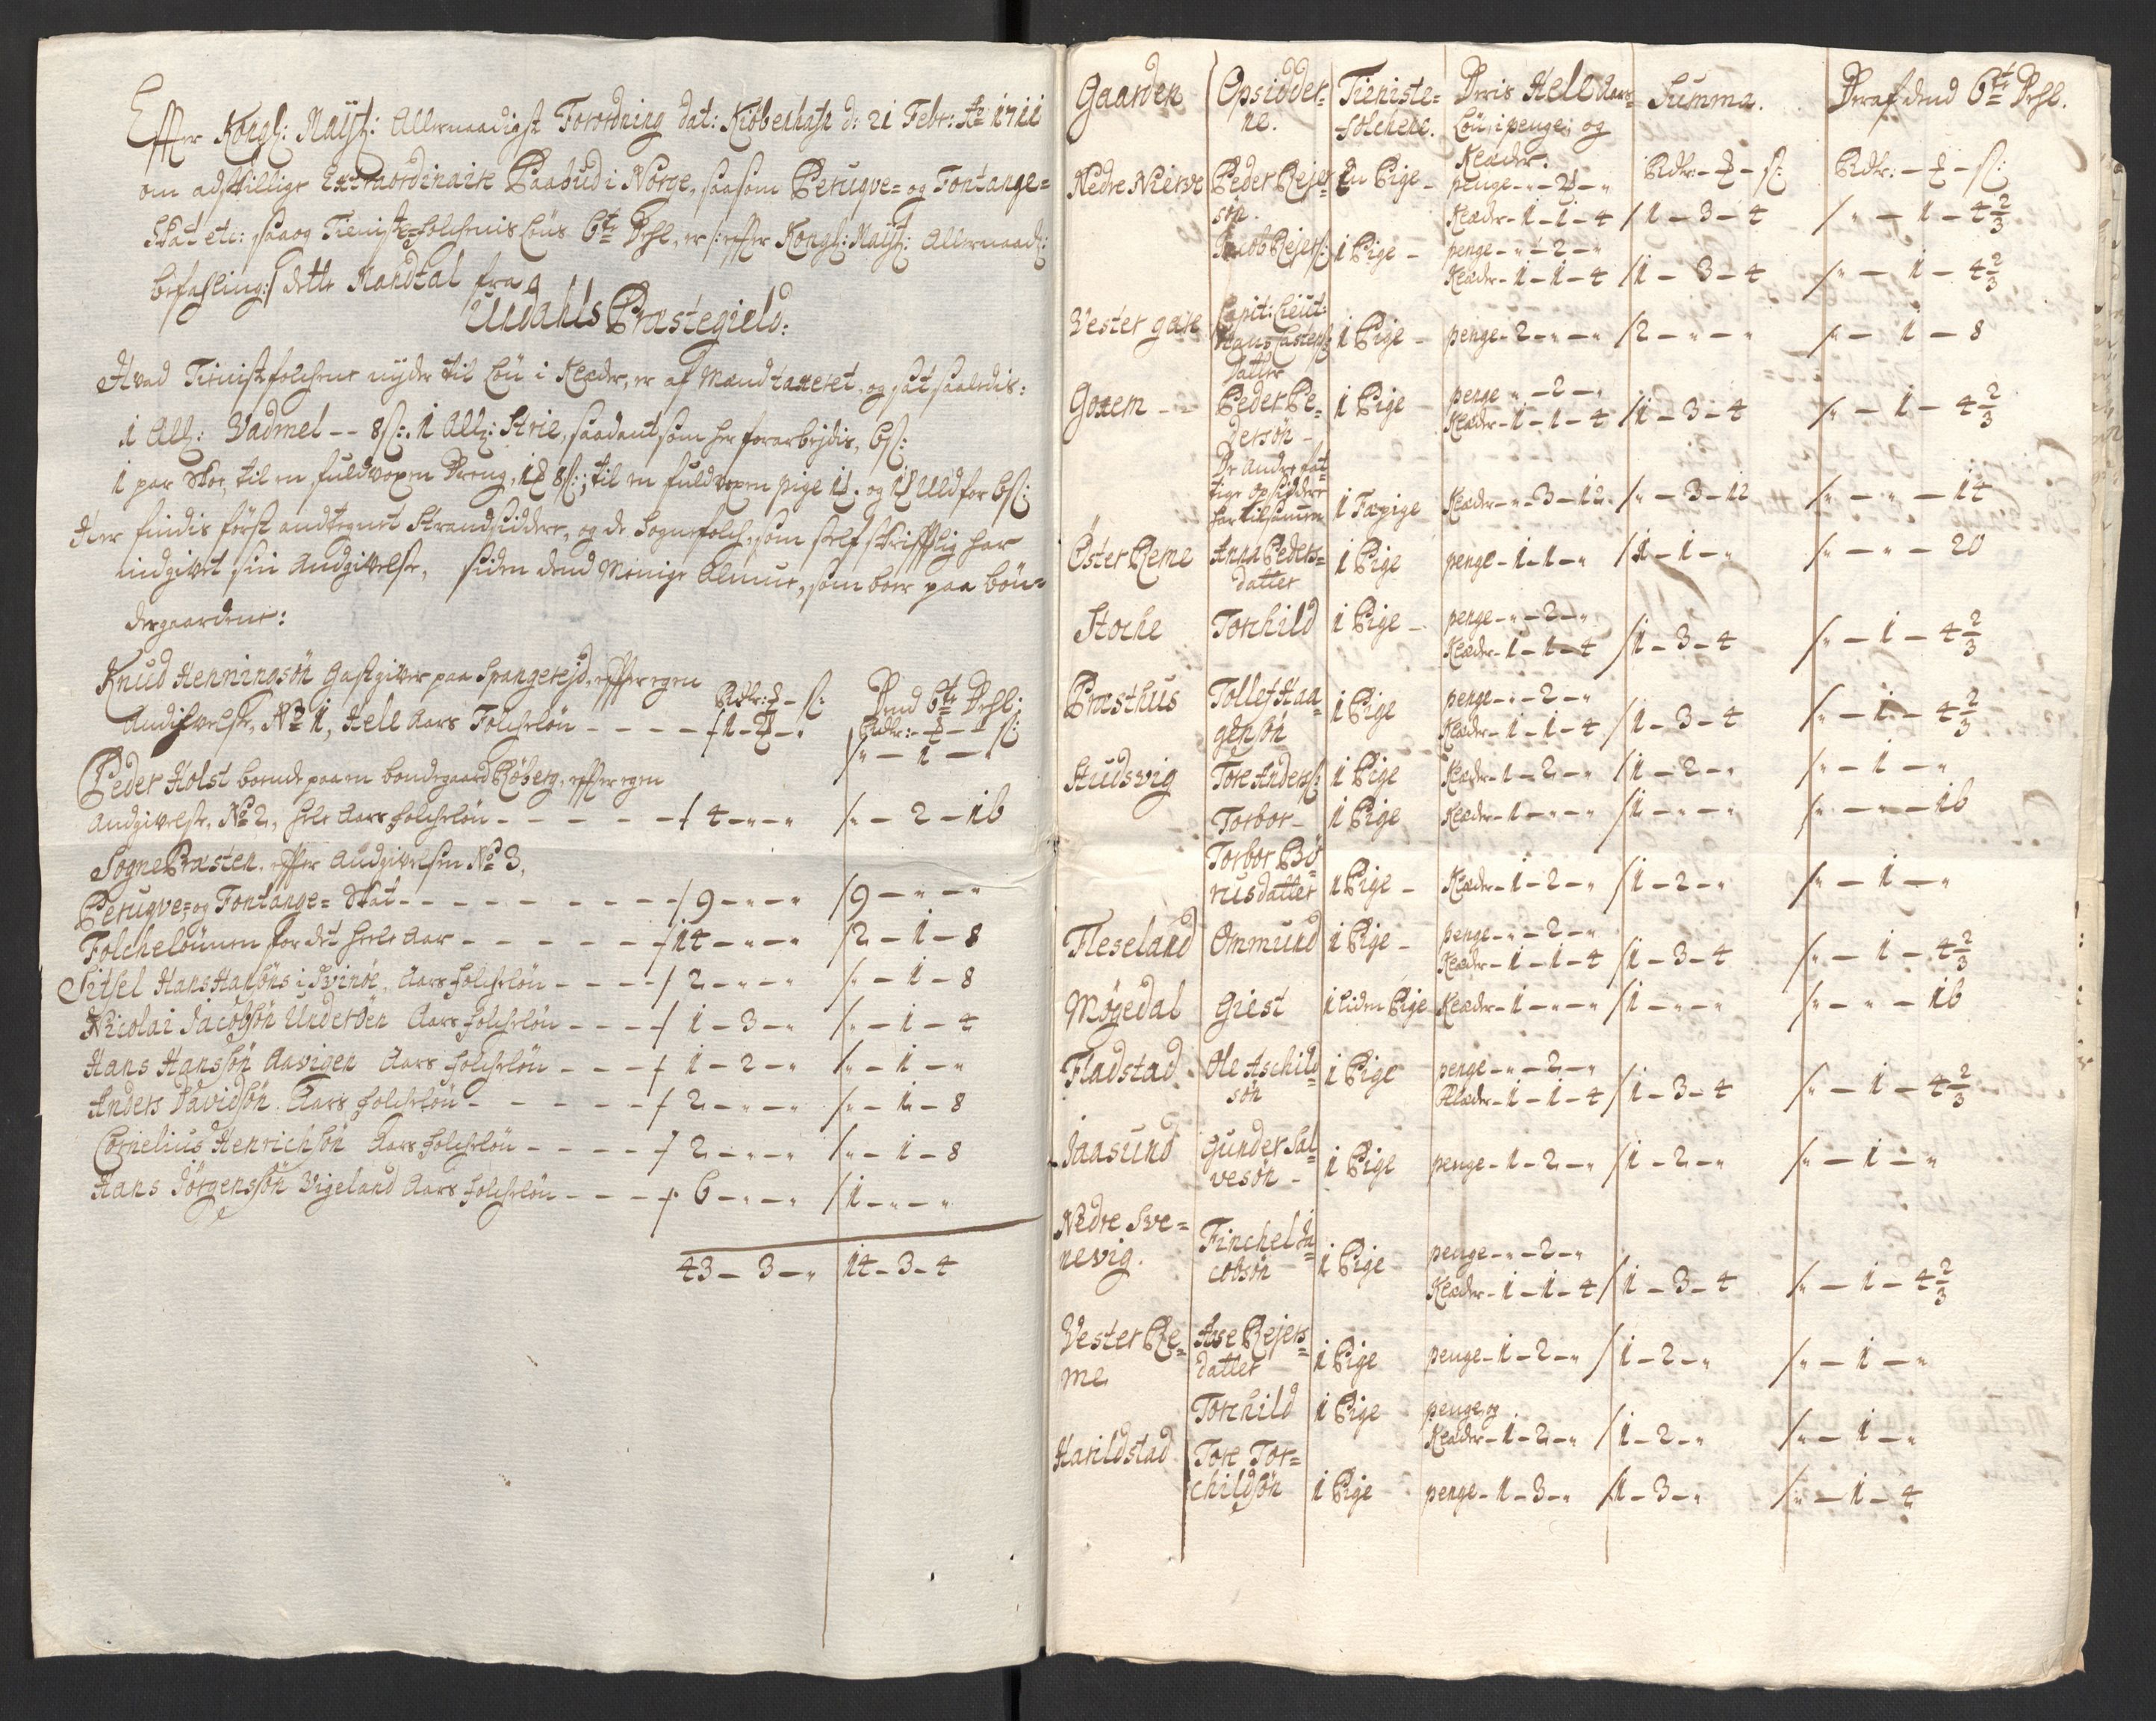 Effter Kongl: Maÿst: Allernaadigst Forordning dat: Kiöbenhafn d: 21 Febr: Ao 1711
om adskillige Extraordinaire Paabud i Norge, saasom Peruqve= og Fontange=
Skat etc: saa og Tieniste=folchenis Löns 6te Dehl, er /: effter Kongl: Maÿst: Allernaad:
befahling :/ dette Mandtal fra
Undahls Præstegield:
Hvad Tienistfolchene nÿder til Lön i Klæder, er af Mænd taxeret og sat saaledis:
1 All: Vadmel -- 8 s:, 1 All: Strie, saadant som her forarbejdis, 6 s:
1 par Skoe, til en fuldvoxen Dreng, 8 s:; til en fuldvoxen pige og Uld for 6 s:
Her findis först andtegnet Strandsiddere, og de Sognefolch, som self skrifftlig har
indgivet sin Andgivelse, siden dend Menige Almue, som boer paa bön=
dergaardene:
Knud Henningsön Gastgiver paa Spangerejd, effter egen
Andgivelse, No 1, Hell Aars Folcheløn - - - - /1 -
Rdlr: - s:
Dend 6te Dehl:
Rdlr: - s:
/" - 1 - "
Peder Holst boende paa en bondegaard Röberg, effter egen
Andgivelse, No 2, hele Aars folchelön - - - - - / 4 - " - " /" - 2 - 16
Sogne Præsten, effter Andgivelsen No 3,
Peruqve= og Fontange= Skat - - - - - - - / 9 - " - " /9 - " - "
Folchelönnen for det heele Aar - - - - - /14 - " - " /2 - 1 - 8
Sitsel Hans Hansöns i Svinöe, Aars folchelön - - - - / 2 - " - " /" - 1 - 8
Nicolai Jacobsön Underöen Aars folchelön - - - / 1 - 3 - " /" - 1 - 4
Hans Hanssön Aavigen Aars folchelön - - - / 1 - 2 - " /" - 1 - "
Anders Davidsön. Aars folchelön - - - - - / 2 - " - " /" - 1 - 8
Cornelius Henrichsön Aars folchelön - - - - / 2 - " - " /" - 1 - 8
Hans Jörgenssön Vigeland Aars folchelön - - - / 6 - " - " /1 - " - "
43 - 3 - " 14 - 3 - 4
Gaarden Opsidder= Tieniste= Deris Hell Aars Summa. Deraf dend 6te Dehl.
ne. folchene. Lön, i penge, og
Klæder. Rdlr: - s: Rdlr: - s:
Nedre Nierve Peder Rejer= En Pige - penge - " - 2 - "
sön. Klæder - 1 - 1 - 4 /1 - 3 - 4 /" - 1 - 4 2/3
Jacob Rejers: 1 Pige - penge - " - 2 - "
Klæder - 1 - 1 - 4 /1 - 3 - 4 /" - 1 - 4 2/3
Vester gare Capit: Lieut:
Hans 1 Pige - penge - 2 - " - " /2 - " - " /" - 1 - 8
datter
Goxem - - Peder Pe= 1 Pige penge " - 2 - "
dersön - Klæder - 1 - 1 - 4 /1 - 3 - 4 /" - 1 - 4 2/3
De andre fat
tige opsiddere
har tilsammen 1 Fæpige Klæder - " - 3 - 12 /" - 3 - 12 /" - " - 14
Öster Reme Anna Peders= 1 Pige penge - 1 - 1 - " /1 - 1 - " /" - " - 20
datter
Stoche Torchild 1 Pige - penge - " - 2 - "
Klæder - 1 - 1 - 4 /1 - 3 - 4 /" - 1 - 4 2/3
Præsthus Tollef Haa= 1 Pige penge - " - 2 - "
gensön Klæder - 1 - 1 - 4 /1 - 3 - 4 /" - 1 - 4 2/3
Hudsvig Tore Anders: 1 Pige Klæder - 1 - 2 - " /1 - 2 - " /" - 1 - "
Torbor - 1 Pige Klæder - 1 - " - " /1 - " - " /" - " - 16
Torbor Bö
rnisdatter 1 Pige - Klæder - 1 - 2 - " /1 - 2 - " /" - 1 - "
Fleseland Ommund 1 Pige - penge - " - 2 - "
Klæder - 1 - 1 - 4 /1 - 3 - 4 /" - 1 - 4 2/3
Möyedal Giest 1 liden Pige Klæder - 1 - " - " /1 - " - " /" - " - 16
Fladstad Ole Aschild= 1 Pige penge - " - 2 - "
sön Klæder - 1 - 1 - 4 /1 - 3 - 4 /" - 1 - 4 2/3
Jaasund Gunder Sal=
vesön - 1 Pige penge - 1 - 2 - " /1 - 2 - " /" - 1 - "
Nedre Sve= Finchel Ja=
nevig. cobsön 1 Pige penge - " - 2 - "
Klæder - 1 - 1 - 4 /1 - 3 - 4 /" - 1 - 4 2/3
Vester Re= Aase Rejers=
me datter 1 Pige penge - 1 - 2 - " /1 - 2 - " /" - 1 - "
Torchild 1 Pige penge og
Klæder - 1 - 2 - " /1 - 2 - " /" - 1 - "
Harildstad Tore Tor=
childsön 1 Pige penge - 1 - 3 - " /1 - 3 - " /" - 1 - 4